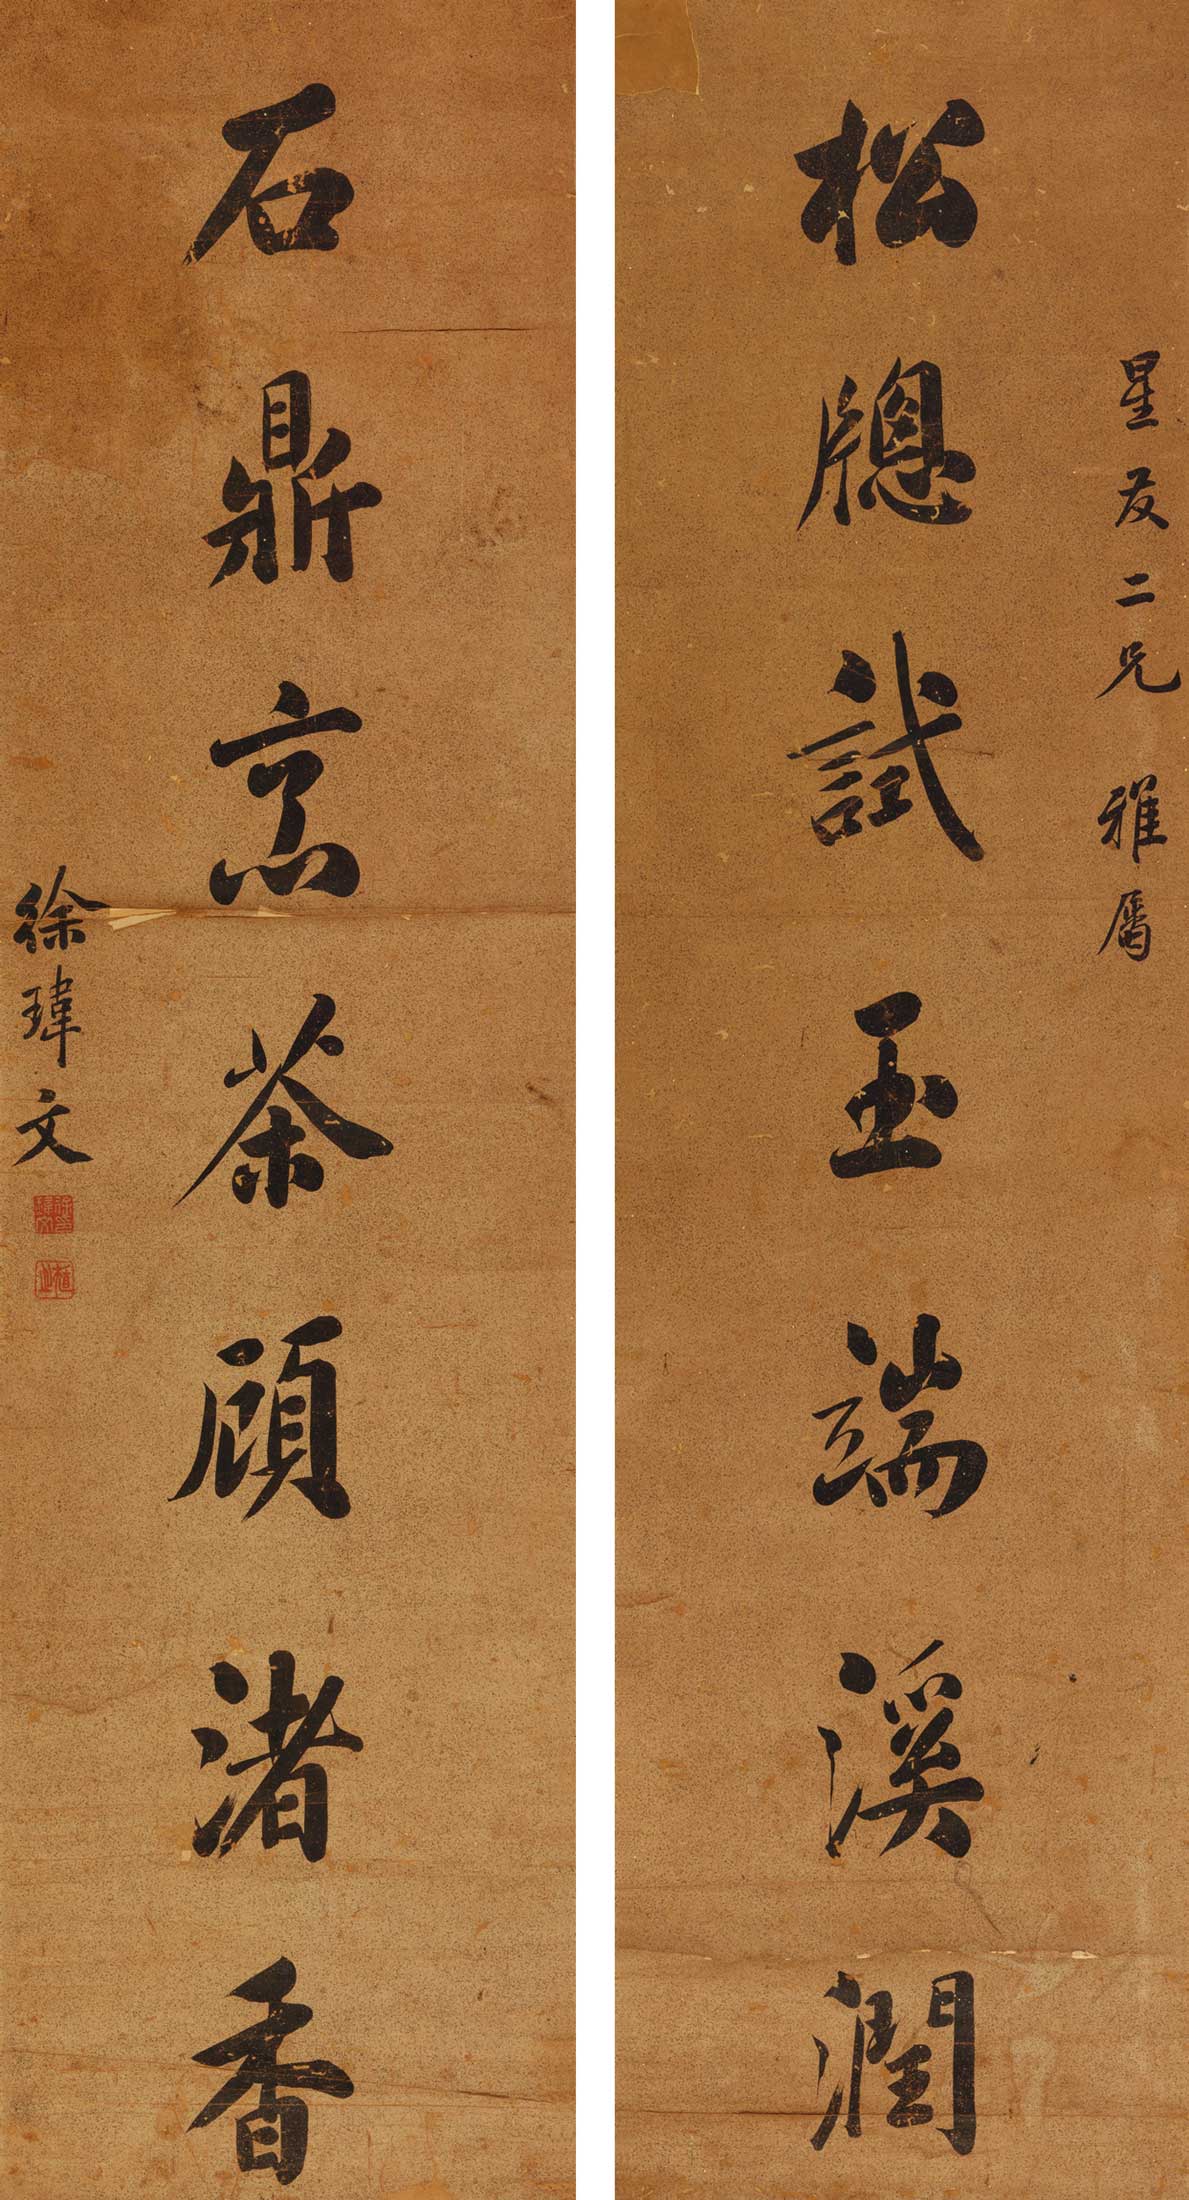 星友二兄雅属
松牕試玉端溪潤
石鼎烹茶顧渚香
徐瑋文